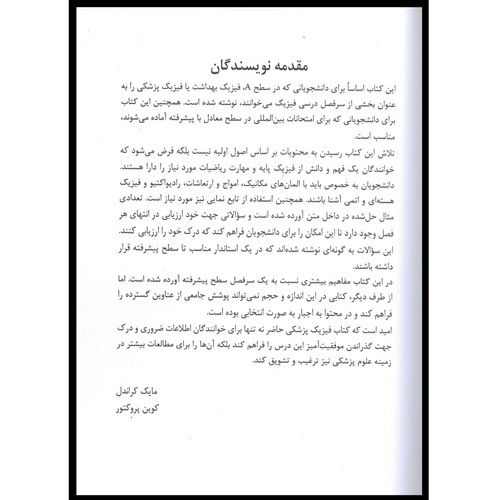 مقدمه نویسندگان
این کتاب اساساً برای دانشجویانی که در سطح A، فیزیک بهداشت یا فیزیک پزشکی را به
عنوان بخشی از سرفصل درسی فیزیک می‌خوانند، نوشته شده است. همچنین این کتاب
برای دانشجویانی که برای امتحانات بین‌المللی در سطح معادل با پیشرفته آماده می‌شوند،
مناسب است.
تلاش این کتاب رسیدن به محتویات بر اساس اصول اولیه نیست بلکه فرض می‌شود که
خوانندگان یک فهم و دانش از فیزیک پایه و مهارت ریاضیات مورد نیاز را دارا هستند.
دانشجویان به خصوص باید با المان‌های مکانیک، امواج و ارتعاشات، رادیواکتیو و فیزیک
هسته‌ای و اتمی آشنا باشند. همچنین استفاده از تابع نمایی نیز مورد نیاز است. تعدادی
مثال حل‌شده در داخل متن آورده شده است و سؤالاتی جهت خود ارزیابی در انتهای هر
فصل وجود دارد تا این امکان را برای دانشجویان فراهم کند که درک خود را ارزیابی کنند.
این سؤالات به گونه‌ای نوشته شده‌اند که در یک استاندار مناسب تا سطح پیشرفته قرار
داشته باشند.
در این کتاب مفاهیم بیشتری نسبت به یک سرفصل سطح پیشرفته آورده شده است. اما
از طرف دیگر، کتابی در این اندازه و حجم نمی‌تواند پوشش جامعی از عناوین گسترده را
فراهم کند و در محتوا به اجبار به صورت انتخابی بوده است.
امید است که کتاب فیزیک پزشکی حاضر نه تنها برای خوانندگان اطلاعات ضروری و درک
جهت گذراندن موفقیت‌آمیز این درس را فراهم کند بلکه آن‌ها را برای مطالعات بیشتر در
زمینه علوم پزشکی نیز ترغیب و تشویق کند.
مایک کراندل
کوین پروکتور